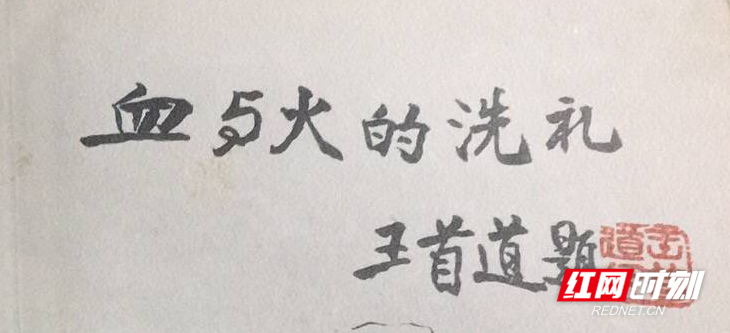 血与火的洗礼
王首道题
红网时刻
REDNET.CN